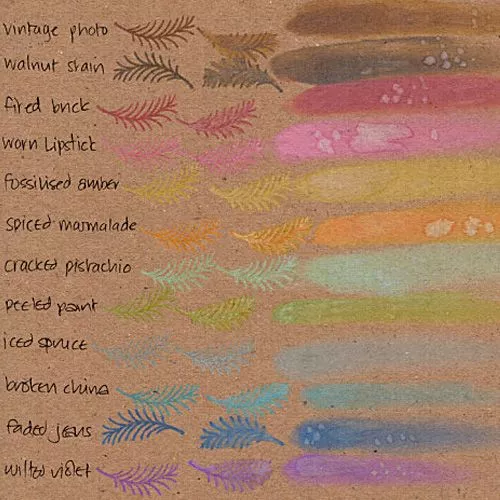 vintage photo
walnut stain
fired brick
worn Lipstick
fossilised amber
spiced marmalade
cracked pistachio
peeled paint
iced spruce
broken china
faded jeans
wilted violet